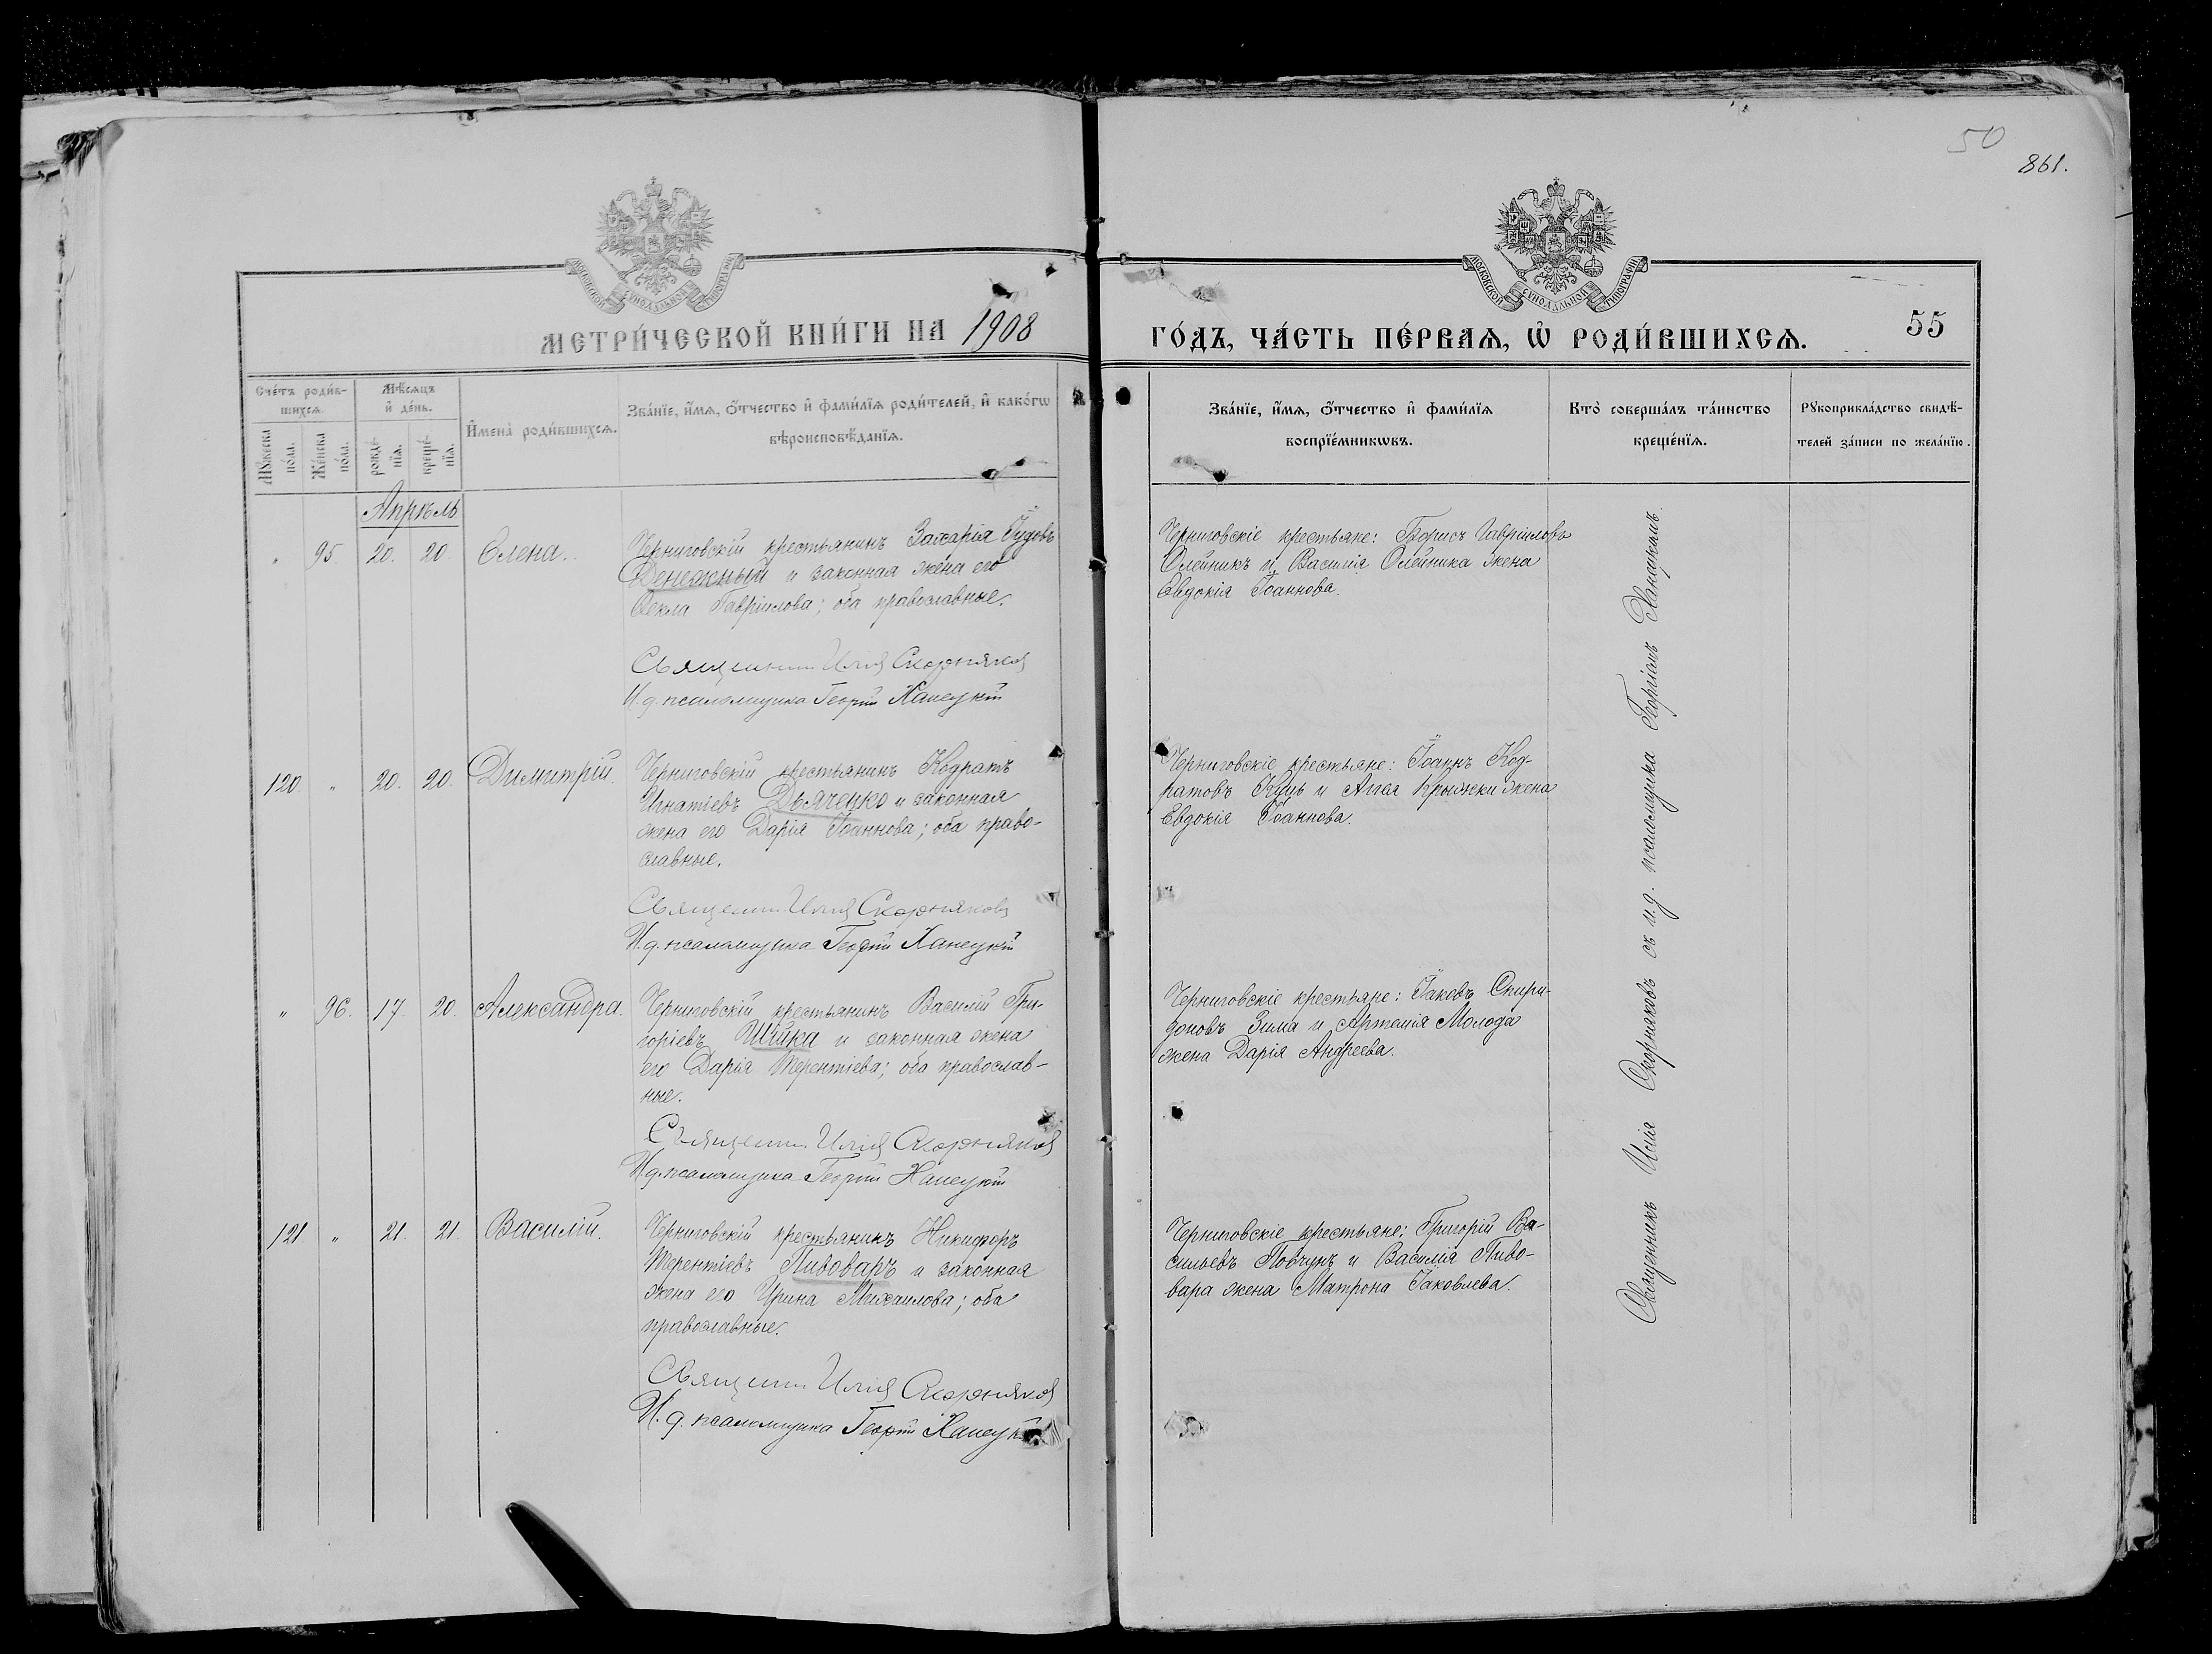 50
861.
МОСКОВСКОЙ СѴНОДАЛЬНОЙ ТИПОГРАФІИ
МОСКОВСКОЙ СѴНОДАЛЬНОЙ ТИПОГРАФІИ
МЕТРИ́ЧЕСКОЙ КНИ́ГИ НА 1908
ГО́ДЪ, ЧА́СТЬ ПЕ́РВАѦ, Ѡ҆ РОДИ́ВШИХСѦ.
55
Сче́тъ роди́в-
шихсѧ.
Мѣ́сѧцъ
и҆ де́нь.
Мꙋ́жеска
по́ла.
Же́нска
по́ла.
рожде́-
нїѧ.
креще́-
нїѧ.
И҆мена̀ роди́вшихсѧ.
Зва́нїе, и҆́мѧ, ѻ҆́тчество и҆ фами́лїѧ роди́телей, и҆ како́гѡ
вѣроисповѣ́данїѧ.
Зва́нїе, и҆́мѧ, ѻ҆́тчество и҆ фами́лїѧ
воспрїе́мникѡвъ.
Кто̀ соверша́лъ та́инство
креще́нїѧ.
Рꙋкоприкла́дство свидѣ́-
телей за́писи по жела́нїю.
Апрѣль
" 95. 20. 20. Елена.
Черниговскій крестьянинъ Захарія Іудовъ
Денежный и законная жена его
Ѳекла Гавріилова; оба православные.
Священник Илія Скорняков
И. д. псаломщика Георгій Ханецкій
Черниговскіе крестьяне: Борисъ Гавріиловъ
Олейникъ и Василія Олейника жена
Евдокія Іоаннова.
120. " 20. 20. Димитрій.
Черниговскій крестьянинъ Кодратъ
Игнатіевъ Дьяченко и законная
жена его Дарія Іоаннова; оба право-
славные.
Священник Илія Скорняковъ
И. д. псаломщика Георгій Ханецкій
Черниговскіе крестьяне: Іоаннъ Код-
ратовъ Куць и Аггея Крыжки жена
Евдокія Іоаннова.
" 96. 17. 20. Александра.
Черниговскій крестьянинъ Василій Гри-
горіевъ Шійка и законная жена
его Дарія Терентіева; оба православ-
ные.
Священник Илія Скорняков
И. д. псаломщика Георгій Ханецкій
Черниговскіе крестьяне: Іаковъ Спири-
доновъ Зима и Артемія Молода
жена Дарія Андреева.
121 " 21. 21. Василій.
Черниговскій крестьянинъ Никифоръ
Терентіевъ Пивоваръ и законная
жена его Ирина Михаилова; оба
православные.
Священник Илія Скорняков
И. д. псаломщика Георгій Ханецкій
Черниговскіе крестьяне: Григорій Ва-
сильевъ Ловчунъ и Василія Пиво-
вара жена Матрона Іаковлева.
Священникъ Илія Скорняковъ съ и. д. псаломщика Георгіемъ Ханецкимъ.